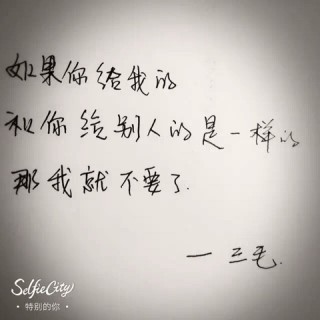 如果你给我的
和你给别人的是一样的
那我就不要了.
一三毛.
SelfieCity
·特别的你·